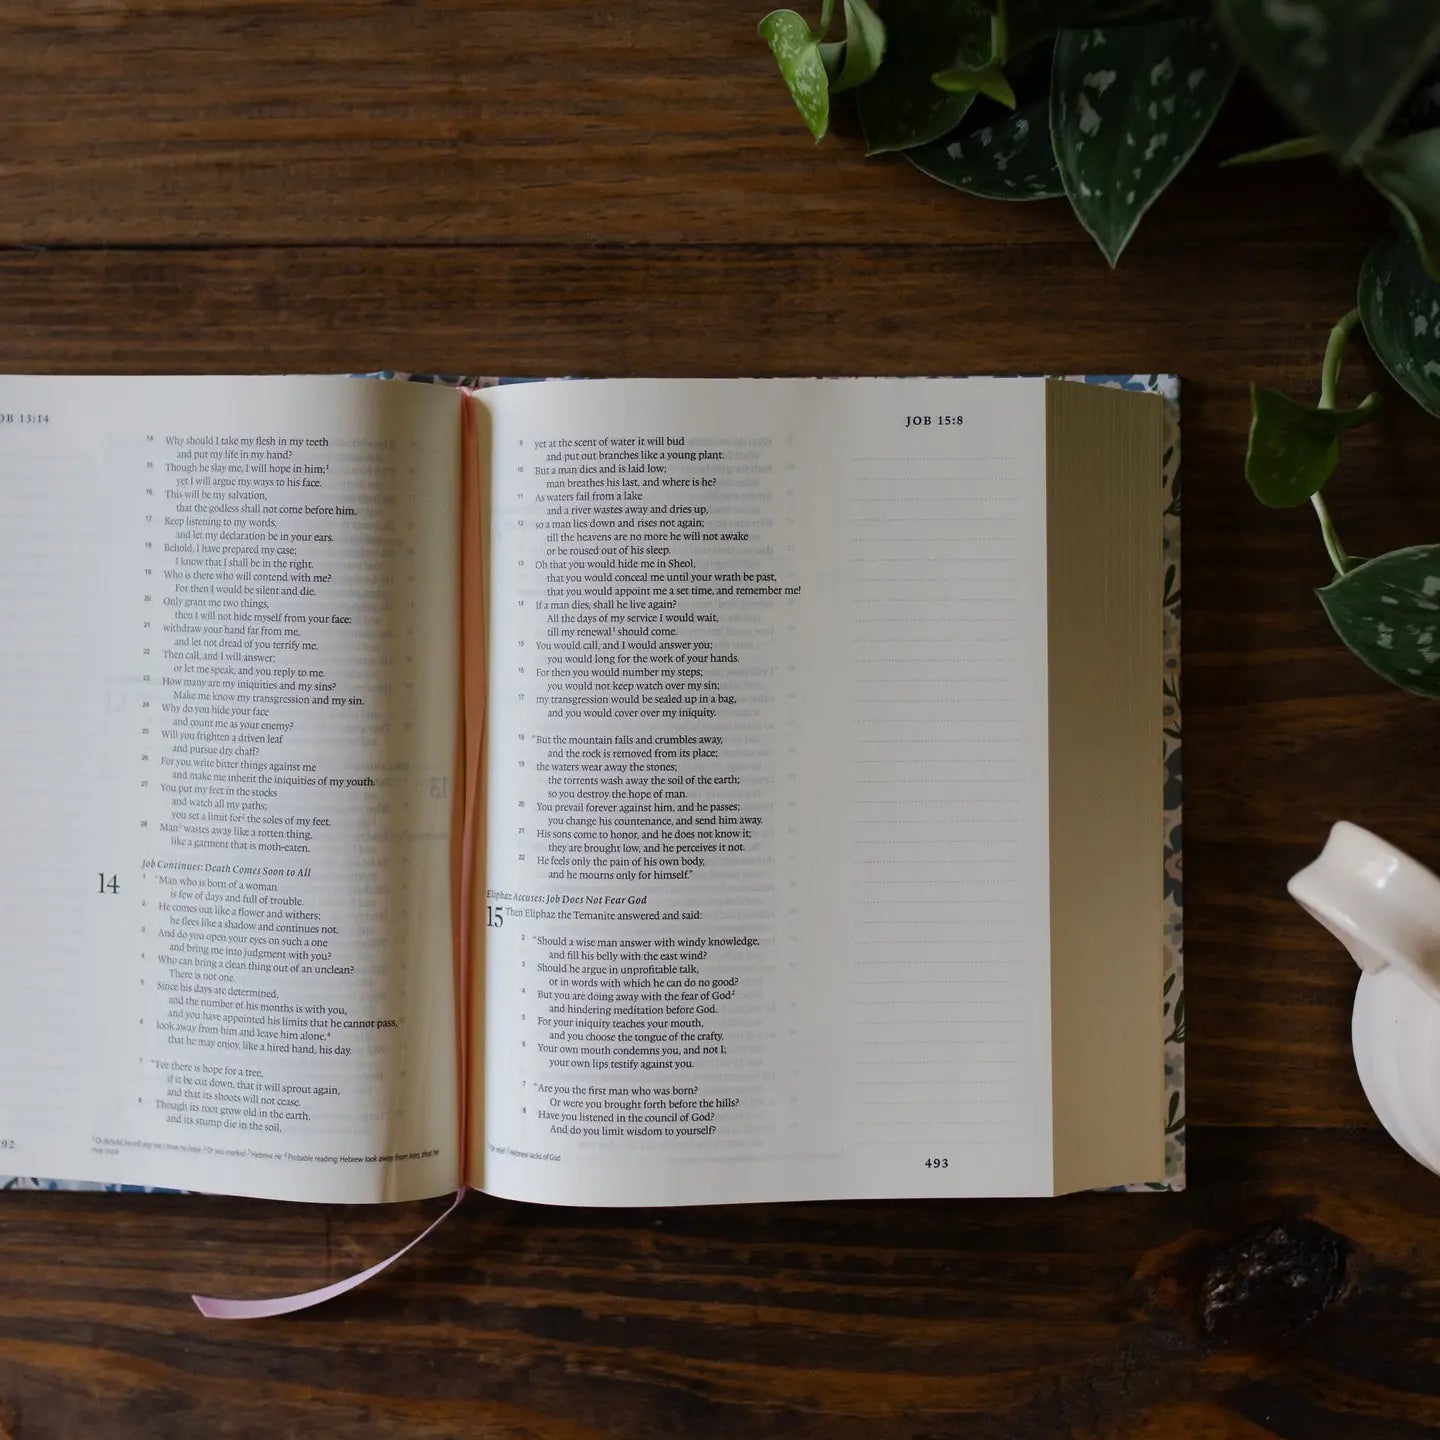 OB 13:14
14 Why should I take my flesh in my teeth
and put my life in my hand?
15 Though he slay me, I will hope in him;¹
yet I will argue my ways to his face.
16 This will be my salvation,
that the godless shall not come before him.
17 Keep listening to my words,
and let my declaration be in your ears.
18 Behold, I have prepared my case;
I know that I shall be in the right.
19 Who is there who will contend with me?
For then I would be silent and die.
20 Only grant me two things,
then I will not hide myself from your face:
21 withdraw your hand far from me,
and let not dread of you terrify me.
22 Then call, and I will answer;
or let me speak, and you reply to me.
23 How many are my iniquities and my sins?
Make me know my transgression and my sin.
24 Why do you hide your face
and count me as your enemy?
25 Will you frighten a driven leaf
and pursue dry chaff?
26 For you write bitter things against me
and make me inherit the iniquities of my youth.
27 You put my feet in the stocks
and watch all my paths;
you set a limit for² the soles of my feet.
28 Man³ wastes away like a rotten thing,
like a garment that is moth-eaten.
Job Continues: Death Comes Soon to All
14
1 "Man who is born of a woman
is few of days and full of trouble.
2 He comes out like a flower and withers;
he flees like a shadow and continues not.
3 And do you open your eyes on such a one
and bring me into judgment with you?
4 Who can bring a clean thing out of an unclean?
There is not one.
5 Since his days are determined,
and the number of his months is with you,
and you have appointed his limits that he cannot pass,
6 look away from him and leave him alone,⁴
that he may enjoy, like a hired hand, his day.
7 "For there is hope for a tree,
if it be cut down, that it will sprout again,
and that its shoots will not cease.
8 Though its root grow old in the earth,
and its stump die in the soil,
¹ Or Behold, he will slay me; I have no hope ² Or you marked ³ Hebrew He ⁴ Probable reading; Hebrew look away from him, that he
may cease
92
JOB 15:8
9 yet at the scent of water it will bud
and put out branches like a young plant.
10 But a man dies and is laid low;
man breathes his last, and where is he?
11 As waters fail from a lake
and a river wastes away and dries up,
12 so a man lies down and rises not again;
till the heavens are no more he will not awake
or be roused out of his sleep.
13 Oh that you would hide me in Sheol,
that you would conceal me until your wrath be past,
that you would appoint me a set time, and remember me!
14 If a man dies, shall he live again?
All the days of my service I would wait,
till my renewal¹ should come.
15 You would call, and I would answer you;
you would long for the work of your hands.
16 For then you would number my steps;
you would not keep watch over my sin;
17 my transgression would be sealed up in a bag,
and you would cover over my iniquity.
18 "But the mountain falls and crumbles away,
and the rock is removed from its place;
19 the waters wear away the stones;
the torrents wash away the soil of the earth;
so you destroy the hope of man.
20 You prevail forever against him, and he passes;
you change his countenance, and send him away.
21 His sons come to honor, and he does not know it;
they are brought low, and he perceives it not.
22 He feels only the pain of his own body,
and he mourns only for himself."
Eliphaz Accuses: Job Does Not Fear God
15 Then Eliphaz the Temanite answered and said:
2 "Should a wise man answer with windy knowledge,
and fill his belly with the east wind?
3 Should he argue in unprofitable talk,
or in words with which he can do no good?
4 But you are doing away with the fear of God²
and hindering meditation before God.
5 For your iniquity teaches your mouth,
and you choose the tongue of the crafty.
6 Your own mouth condemns you, and not I;
your own lips testify against you.
7 "Are you the first man who was born?
Or were you brought forth before the hills?
8 Have you listened in the council of God?
And do you limit wisdom to yourself?
relief ² Hebrew lacks of God
493